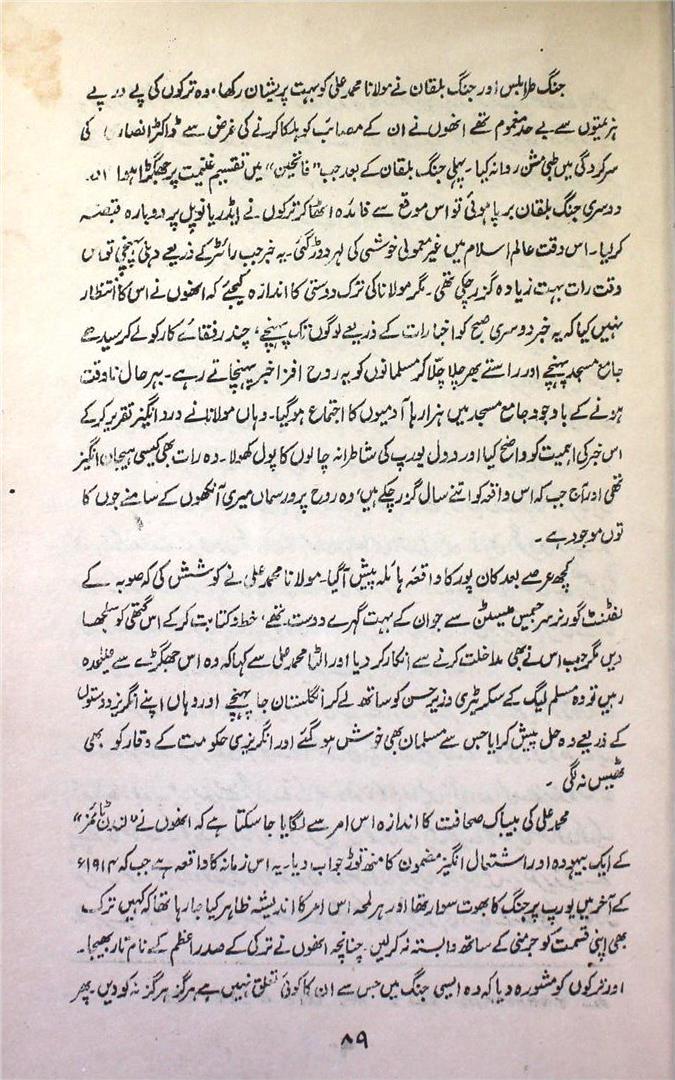 جنگ طرابلس اور جنگ بلقان نے مولانا محمد علی کو بہت پریشان رکھا۔ وہ ترکوں کی پے در پے
ہزیمتوں سے بے حد مغموم تھے انھوں نے ان کے مصائب کو ہلکا کرنے کی غرض سے ڈاکٹر انصاری کی
سرکردگی میں طبی مشن روانہ کیا۔ پہلی جنگ بلقان کے بعد جب "فاتحین" میں تقسیم غنیمت پر جھگڑا ہوا اور
دوسری جنگ بلقان برپا ہوئی تو اس موقع سے فائدہ اٹھا کر ترکوں نے ایڈریانوپل پر دوبارہ قبضہ
کر لیا۔ اس وقت عالم اسلام میں غیر معمولی خوشی کی لہر دوڑ گئی۔ یہ خبر جب رائٹر کے ذریعے دہلی پہنچی تو اس
وقت رات بہت زیادہ گزر چکی تھی۔ مگر مولانا کی ترک دوستی کا اندازہ کیجئے کہ انھوں نے اس کا انتظار
نہیں کیا کہ یہ خبر دوسری صبح کو اخبارات کے ذریعے لوگوں تک پہنچے، چند رفقائے کار کو لے کر سیدھے
جامع مسجد پہنچے اور راستے بھر چلا چلّا کر مسلمانوں کو یہ روح افزا خبر پہنچاتے رہے۔ بہر حال ناوقت
ہونے کے باوجود جامع مسجد میں ہزارہا آدمیوں کا اجتماع ہو گیا۔ وہاں مولانا نے درد انگیز تقریر کر کے
اس خبر کی اہمیت کو واضح کیا اور دول یورپ کی شاطرانہ چالوں کا پول کھولا۔ وہ رات بھی کیسی ہیجان انگیز
تھی اور آج جب کہ اس واقعہ کو اتنے سال گذر چکے ہیں، وہ روح پرور سماں میری آنکھوں کے سامنے جوں کا
توں موجود ہے۔
کچھ عرصے بعد کان پور کا واقعہ ہائلہ پیش آگیا۔ مولانا محمد علی نے کوشش کی کہ صوبہ کے
لفٹنٹ گورنر سر جیمس میسٹن سے جو ان کے بہت گہرے دوست تھے، خط و کتابت کر کے اس گتھی کو سلجھا
دیں مگر جب اس نے بھی مداخلت کرنے سے انکار کر دیا اور الٹا محمد علی سے کہا کہ وہ اس جھگڑے سے علیحدہ
رہیں تو وہ مسلم لیگ کے سکریٹری وزیر حسن کو ساتھ لے کر انگلستان جا پہنچے اور وہاں اپنے انگریز دوستوں
کے ذریعے وہ حل پیش کرایا جس سے مسلمان بھی خوش ہو گئے اور انگریزی حکومت کے وقار کو بھی
ٹھیس نہ لگی۔
محمد علی کی بیباک صحافت کا اندازہ اس امر سے لگایا جا سکتا ہے کہ انھوں نے "لندن ٹائمز"
کے ایک بیہودہ اور اشتعال انگیز مضمون کا منھ توڑ جواب دیا۔ یہ اس زمانہ کا واقعہ ہے جب کہ ۱۹۱۴ء
کے آخر میں یورپ پر جنگ کا بھوت سوار تھا اور ہر لمحہ اس امر کا اندیشہ ظاہر کیا جا رہا تھا کہ کہیں ترک
بھی اپنی قسمت کو جرمنی کے ساتھ وابستہ نہ کر لیں۔ چنانچہ انھوں نے ترکی کے صدر اعظم کے نام تار بھیجا۔
اور ترکوں کو مشورہ دیا کہ وہ ایسی جنگ میں جس سے ان کا کوئی تعلق نہیں ہے ہرگز ہرگز نہ کودیں۔ پھر
۸۹